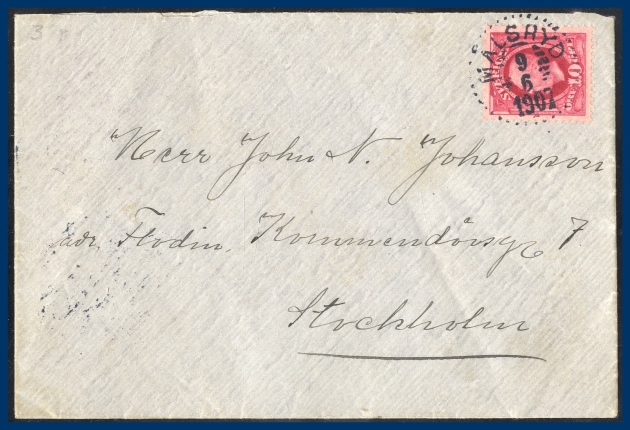 3
MÅLSRYD
9
6
1907
Herr John N. Johansson
adr. Flodin, Kommendörsg 7.
Stockholm